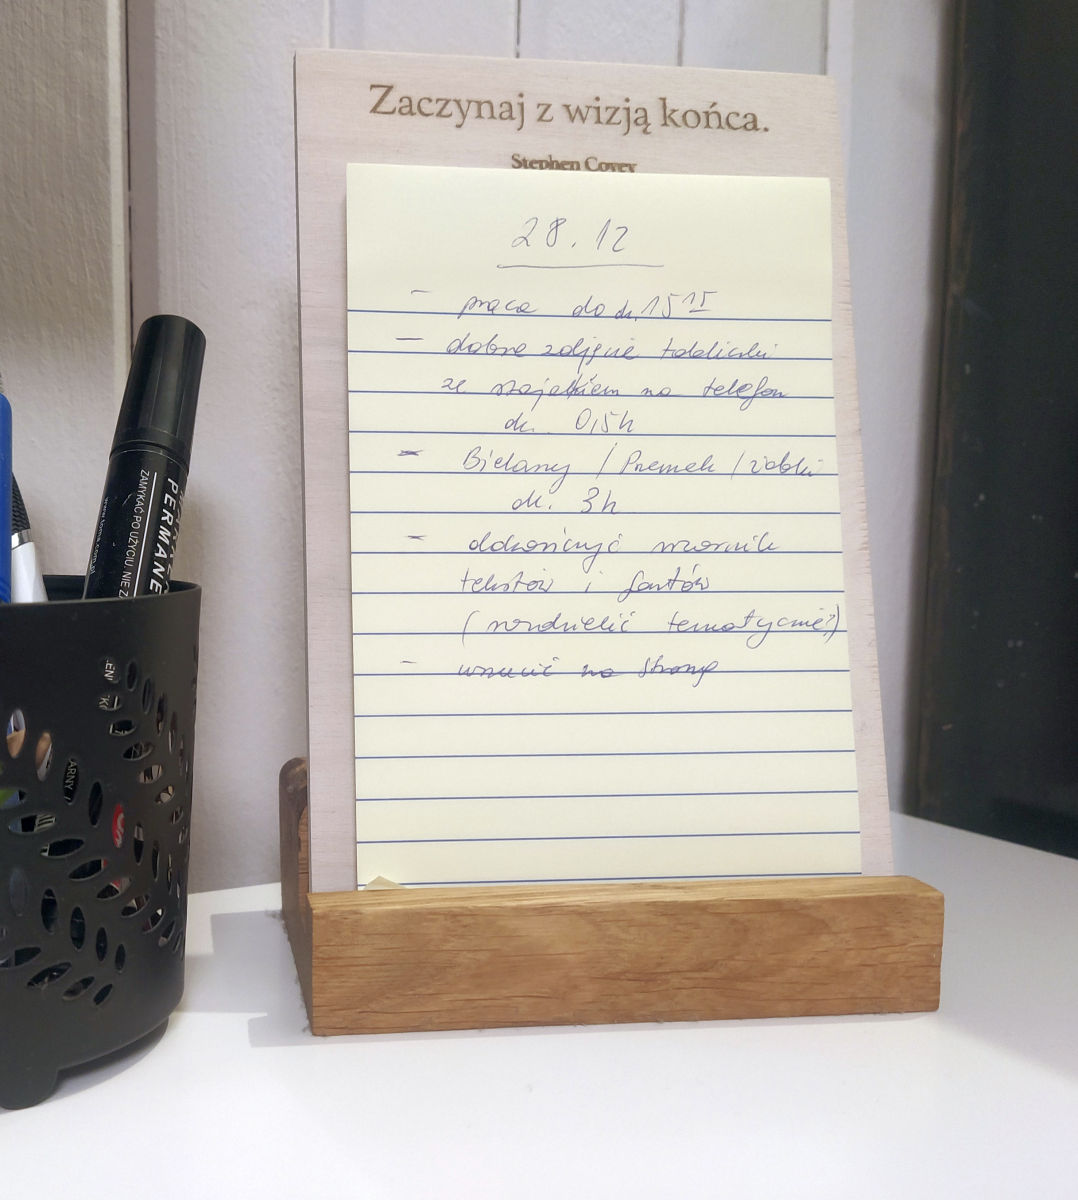 Zaczynaj z wizją końca.
Stephen Covey
28.12
- praca do ok. 15 15
- dobre zdjęcie tabliczki
ze stojakiem na telefon
ok. 0,5h
- Bielany / Przemek / żabki
ok. 3h
- dokończyć wzornik
tekstów i fontów
(rozdzielić tematycznie?)
- wrzucić na stronę
PERMANE
ZAMYKAĆ PO UŻYCIU. NIE